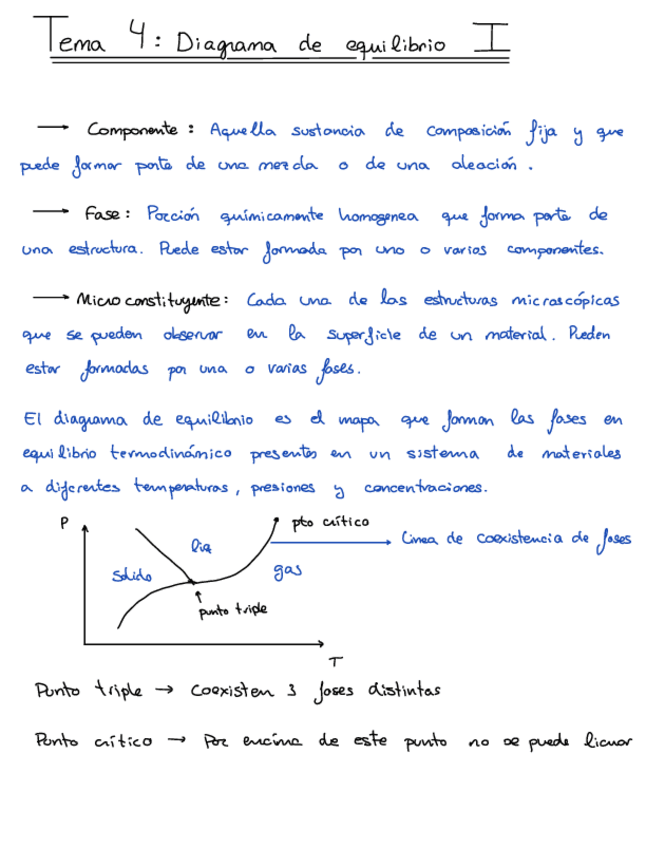 Tema 4: Diagrama de equilibrio I
→ Componente: Aquella sustancia de composición fija y que
puede formar parte de una mezcla o de una aleación.
→ Fase: Porción químicamente homogenea que forma parte de
una estructura. Puede estar formada por uno o varios componentes.
→ Microconstituyente: Cada una de las estructuras microscópicas
que se pueden observar en la superficie de un material. Pueden
estar formadas por una o varias fases.
El diagrama de equilibrio es el mapa que forman las fases en
equilibrio termodinámico presentes en un sistema de materiales
a diferentes temperaturas, presiones y concentraciones.
P
pto crítico
Linea de coexistencia de fases
liq
sólido
gas
punto triple
T
Punto triple → Coexisten 3 fases distintas
Punto crítico → Por encima de este punto no se puede licuar